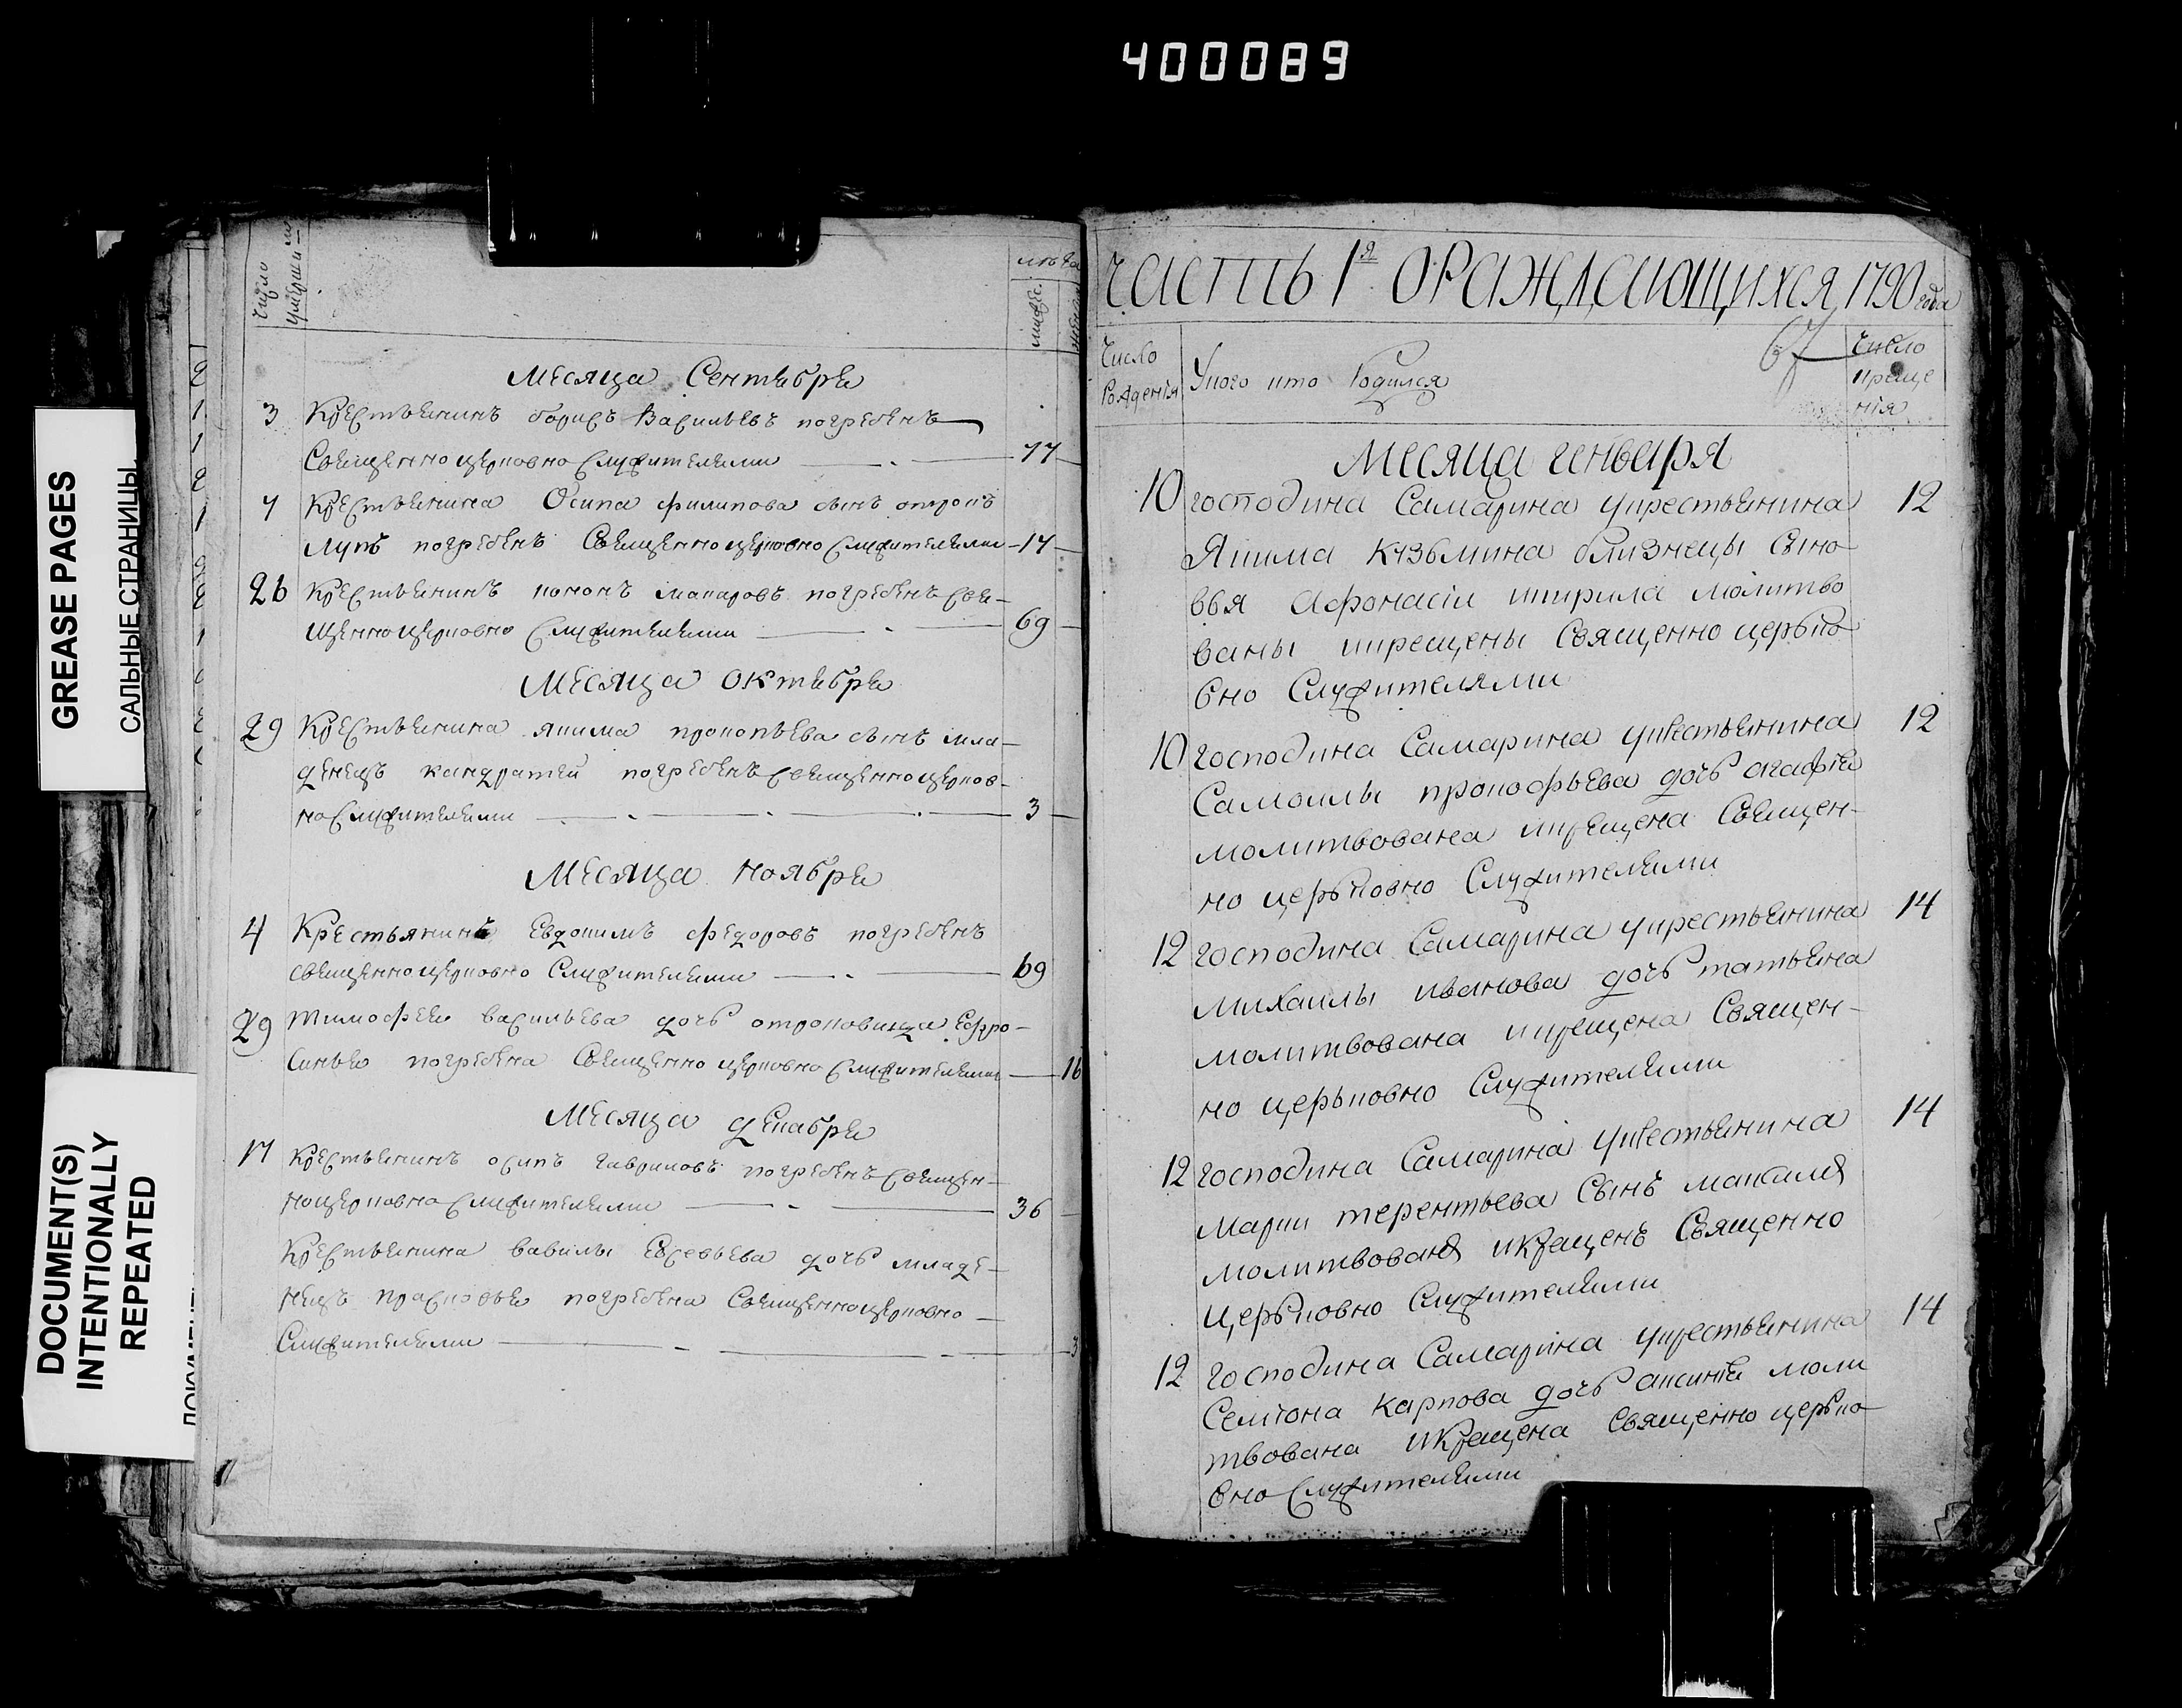 400089
GREASE PAGES
САЛЬНЫЕ СТРАНИЦЫ.
DOCUMENT(S)
INTENTIONALLY
REPEATED
Число
умерши
лѣта
мужес.
Месяца Сентября
3 Крестьянинъ борисъ Васильевъ погребенъ
Священно церковно служителями 77
7 Крестьянина Осипа филипова сынъ отрокъ
лупъ погребенъ Священно церковно служителями 14
26 Крестьянинъ кононъ макаровъ погребенъ свя-
щенно церковно служителями 69
Месяца октября
29 Крестьянина якима прокопьева сынъ мла-
денецъ кандратей погребенъ священно церков-
но служителями 3
Месяца ноября
4 Крестьянинъ Евдокимъ федоровъ погребенъ
священно церковно служителями 69
29 тимофея васильева дочь отроковица Ефро-
синья погребена Священно церковно служителями 16
Месяца декабря
17 крестьянинъ осипъ гавриловъ погребенъ священ-
но церковно служителями 36
Крестьянина вавилы Евсевьева дочь младе-
нецъ прасковья погребена Священно церковно
Служителями 3
Часть 1я ораждающихся 1790 года
67
Число
Рожденія
Укого кто Родился
Число
креще
нія
Месяца генваря
10 господина Самарина укрестьянина 12
Якима Кузьмина близнецы сыно
вья Афонасіи икирила молитво
ваны икрещены Священно церько
вно Служителями
10 господина Самарина укрестьянина 12
Самоилы прокофьева дочь агафья
молитвована икрещена Священ-
но церьковно Служителями
12 господина Самарина укрестьянина 14
михаилы иванова дочь татьяна
молитвована икрещена Священ-
но церьковно Служителями
12 господина Самарина укрестьянина 14
марки терентьева Сынъ максимъ
молитвованъ икрещенъ Священно
Церьковно Служителями
12 господина Самарина укрестьянина 14
Семіона Карпова дочь аксинья моли
твована икрещена Священно церько
вно Служителями